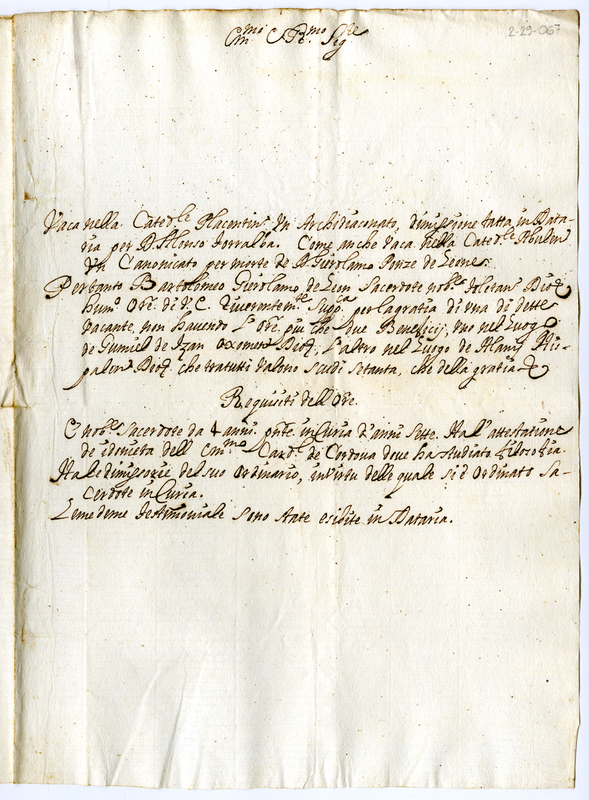 2-29-067
Em.mo e R.mo Sig.re
Vaca nella Cated.le Placentin. Un Archidiaconato, dimissione fatta in Data-
ria per D. Alonso Torralba. Come anche vaca nella Cated.le Abulen
Un Canonicato per morte de D. Gierolamo Perize de Leone:
Pertanto Bartolomeo Gierolamo de Leon Sacerdote nob.e Toletan Dioc.
hum.o Ore. di V.E. riverentem.te Supp.ca per la gratia di una di dette
Vacante, non havendo l'Ore. più che due Beneficij, uno nel Luogo
de Gumiel de Izan Oxomen Dioc., l'altro nel Luogo de Alanis His-
palen Dioc. che tra tutti valono Scudi settanta, che della gratia
Requisiti dell'Ore.
E nob.e Sacerdote da 4 anni. pnte. in Curia d'anni sette. Ha l'attestatione
de idoneita dell' Em.mo Card. de Cordona dove ha studiato filosofia.
Ha le dimissorie del suo Ordinario, in virtu delle quale si è Ordinato Sa-
cerdote in Curia.
Le medeme Testimoniale sono state esibite in Dataria.